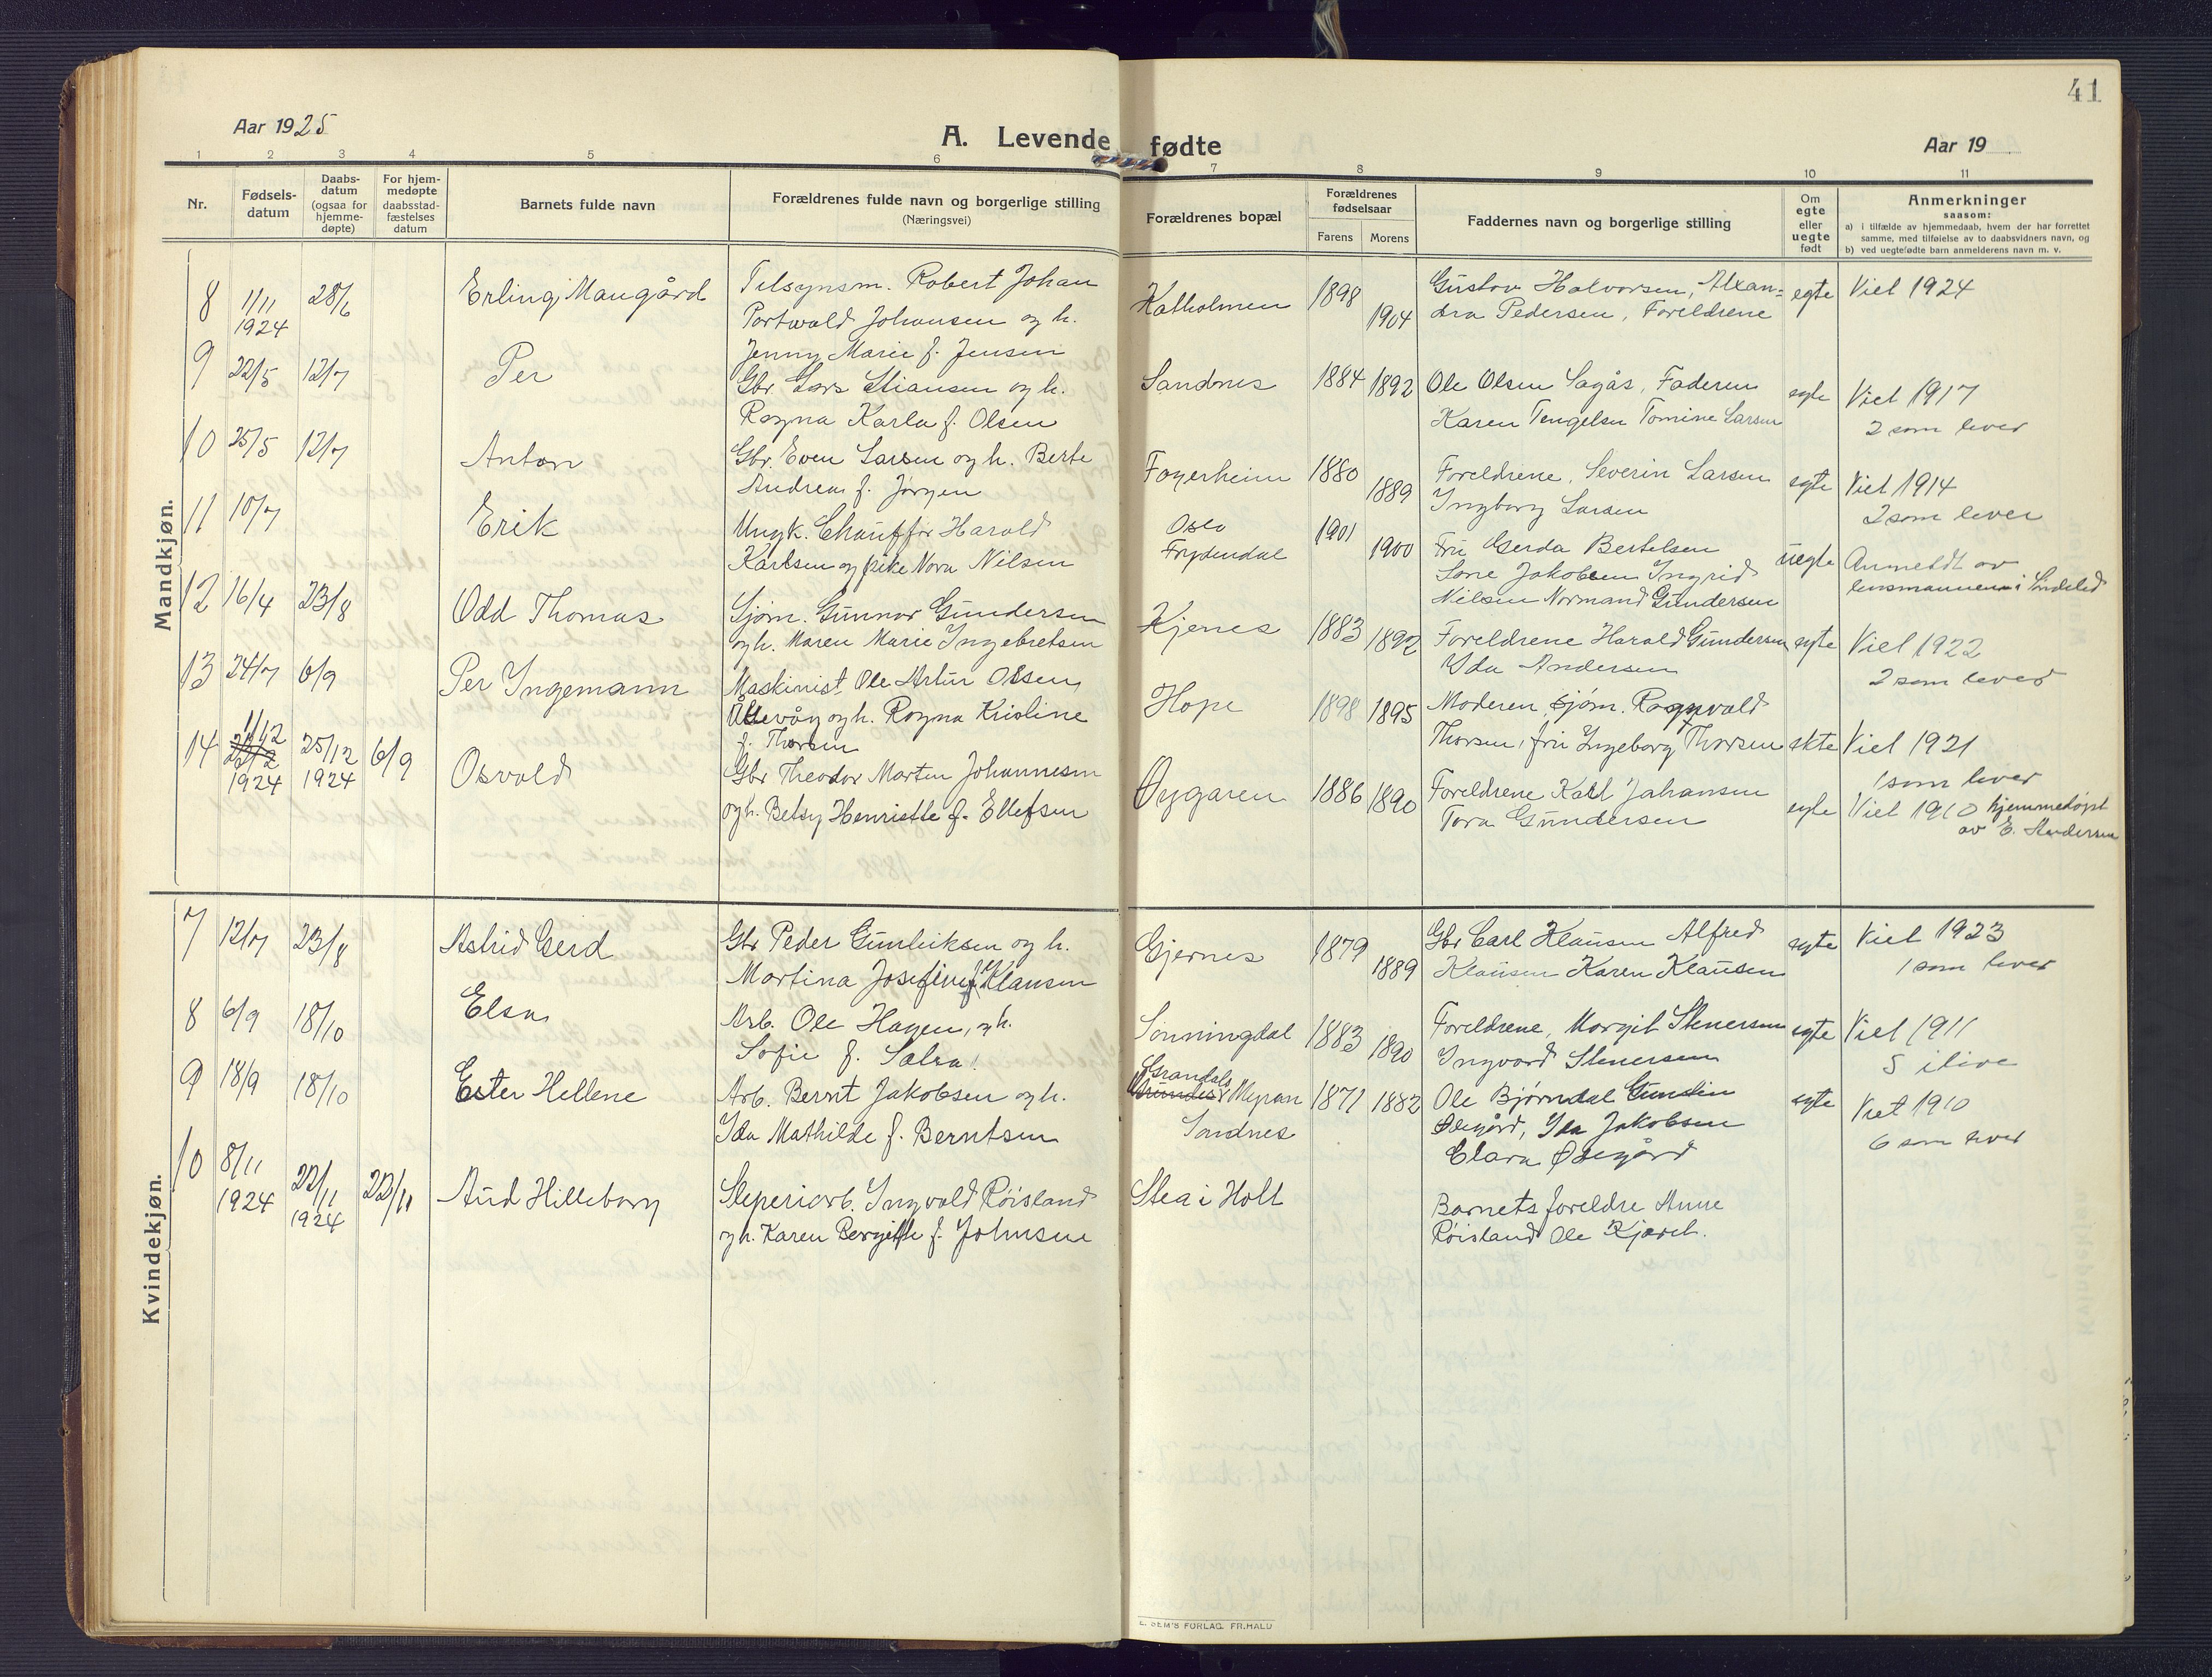 41
Aar 1925
A. Levende fødte
Aar 19
1 2 3 4 5 6 7 8 9 10 11
Nr.
Fødsels-
datum
Daabs-
datum
(ogsaa for
hjemme-
døpte)
For hjem-
medøpte
daabsstad-
fæstelses
datum
Barnets fulde navn
Forældrenes fulde navn og borgerlige stilling
(Næringsvei)
Forældrenes bopæl
Forældrenes
fødselsaar
Farens Morens
Faddernes navn og borgerlige stilling
Om
egte
eller
uegte
født
Anmerkninger
saasom:
a) i tilfælde av hjemmedaab, hvem der har forrettet
samme, med tilføielse av to daabsvidners navn, og
b) ved uegtefødte barn anmelderens navn m. v.
Mandkjøn.
8 1/11 1924 28/6 Erling Maugård
Tilsynsm. Robert Johan
Portwald Johansen og h.
Jenny Marie f. Jensen
Katholmen 1898 1904
Gustav Halvorsen, Alxan=
dra Pedersen, Foreldrene
egte Viet 1924
9 22/5 12/7 Per
Gbr. Lars Stiansen og h.
Ragna Karla f. Olsen
Sandnes 1884 1892
Ole Olsen Sagås, Faderen
Karen Tengelsen Tomine Larsen
egte Viet 1917
2 som lever
10 25/5 12/7 Anton
Gbr. Even Larsen og h. Berte
Andrea f. Jørgen
Fagerheim 1880 1889
Foreldrene, Severin Larsen
Ingborg Larsen
egte Viet 1914
2 som lever
11 10/7 Erik
Ungk. Chauffør Harald
Karlsen og pike Nora Nilsen
Oslo
Frydendal 1901 1900
Fru Gerda Bertelsen
Jakobsen Ingrid
Nilsen Normand Gundersen
uegte Anmeldt av
lensmannen i Søndeled
12 16/4 23/8 Odd Thomas
Sjøm. Gunnar Gundersen
og h. Maren Marie Ingebretsen
Kjenes 1883 1892
Foreldrene Harald Gundersen
Ida Andersen
egte Viet 1922
2 som lever
13 24/7 6/9 Per Ingemann
Maskinist Ole Artur Olsen
Ollevåg og h. Ragna Kristine
f. Thorsen
Hope 1898 1895
Moderen, sjøm. Ragnvald
Thorsen, fru Ingeborg Thorsen
ekte Viet 1921
1 som lever
14 11/12 1924 25/12 1924 6/9 Osvald
Gbr Theodor Martin Johannesen
og h. Betsy Henriette f. Ellefsen
Øygaren 1886 1890
Foreldrene Karl Johansen
Tora Gundersen
egte Viet 1910 hjemmedøpt
av E.
Kvindekjøn.
7 12/7 23/8 Astrid Gerd
Gbr Peder Gunleiksen og h.
Martina Josefine f. Klausen
Gjernes 1879 1889
Gbr Carl Klausen Alfred
Klausen Karen Klausen
egte Viet 1923
1 som lever
8 6/9 18/10 Elsa
Arb. Ole Hagen, og h.
Sofie f.
Sønningdal 1883 1890
Foreldrene, Margit Stenersen
Ingvard Stenersen
egte Viet 1911
5 ilive
9 18/9 18/10 Ester Hellene
Arb. Bernt Jakobsen og h.
Ida Mathilde f. Berntsen
Grandals
Myran
Sandnes 1871 1882
Ole Bjørndal
Ødegård, Ida Jakobsen
Clara Ødegård
egte Viet 1910
6 som lever
10 8/11 1924 22/11 1924 22/11 Aud Hilleborg
Sleperiarb. Ingvald Røisland
og h. Karen Bergitte f. Johnsen
Stea i Holt
Barnets foreldre Anne
Røisland Ole
E. SEM'S FORLAG. FR.HALD